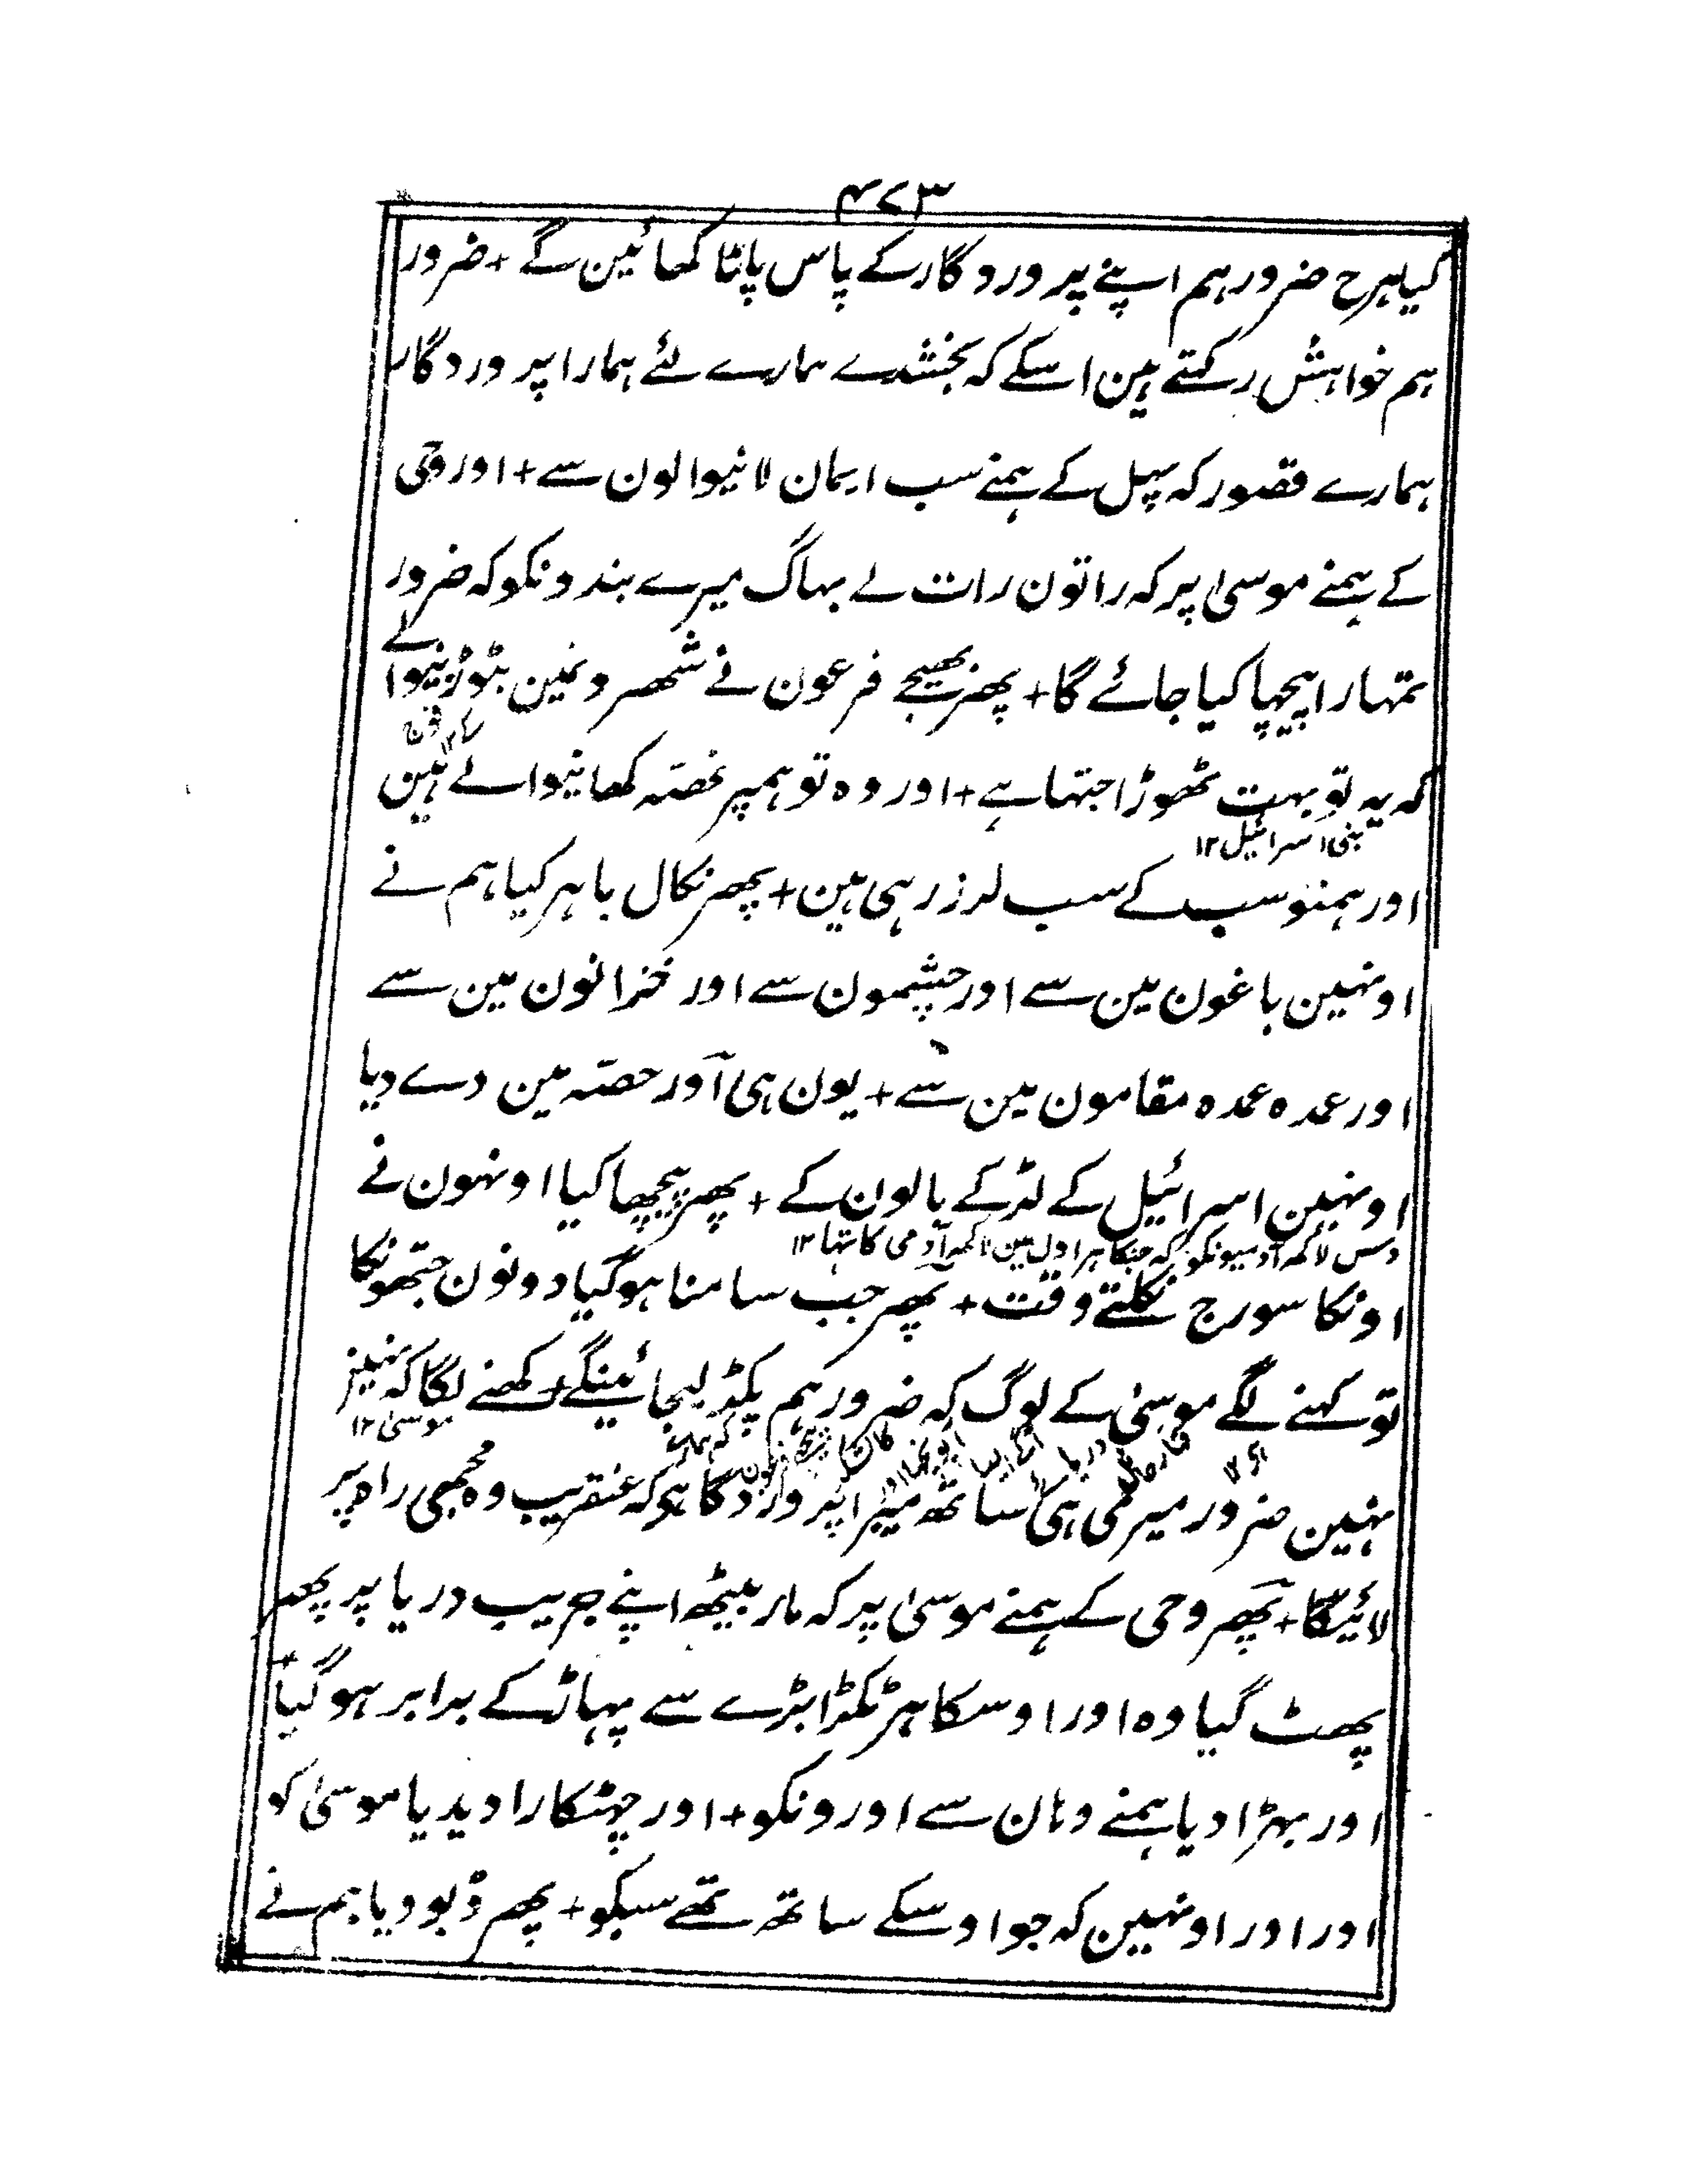 ۴۷۳
کیا ہرج ضرور ہم اپنے پروردگار کے پاس پلٹا کھائین گے + ضرور
ہم خواہش رکہتے ہین اسکے کہ بخشدے ہمارے لئے ہمارا پروردگار
ہمارے قصور کہ پہل کے ہمنے سب ایمان لانیوالون سے + اور وحی
کے ہمنے موسیٰ پر کہ راتون رات لے بہاگ میرے بندونکو کہ ضرور
تمہارا پیچہا کیا جائے گا + پھر بھیجے فرعون نے شھرونمین بٹوڑنیوالے
کہ یہ تو بہت تھوڑا جتہا ہے + اور وہ تو ہمپر غصّہ کھانیوالے ہین
بنی اسرائیل ۱۲
اور ہمنو سب کے سب لرز رہی ہین + پھر نکال باہر کیا ہم نے
اونہین باغون مین سے اور چشمون سے اور خزانون مین سے
اور عمدہ عمدہ مقامون مین سے + یون ہی اور حصّہ مین دے دیا
اونہین اسرائیل کے لڑکے بالون کے + پھر پیچھا کیا اونہون نے
دس لاکہہ آدمیونکو کہ جنکا ہراول مین لاکہہ آدمی کا تہا ۱۲
اونکا سورج نکلتے وقت + پھر جب سامنا ہوگیا دونون جتھونکا
تو کہنے لگے موسیٰ کے لوگ کہ ضرور ہم پکڑ لیجائینگے + کھنے لگا کہ
موسیٰ ۱۲
نہین ضرور میرے ہی ساتھ میرا پروردگار ہے کہ عنقریب وہ مجھی راہ پر
لائیگا + پھر وحی کے ہمنے موسیٰ پر کہ مار بیٹھ اپنے جریب دریا پر پھر
پھٹ گیا وہ اور اوسکا ہر ٹکڑا بڑے سے پہاڑ کے برابر ہو گیا +
اور بہڑا دیا ہمنے وہان سے اورونکو + اور چہٹکارا دیدیا موسیٰ کو
اور اور اونہین کہ جو اوسکے ساتھ تھے سبکو + پھر ڈبو دیا ہم نے